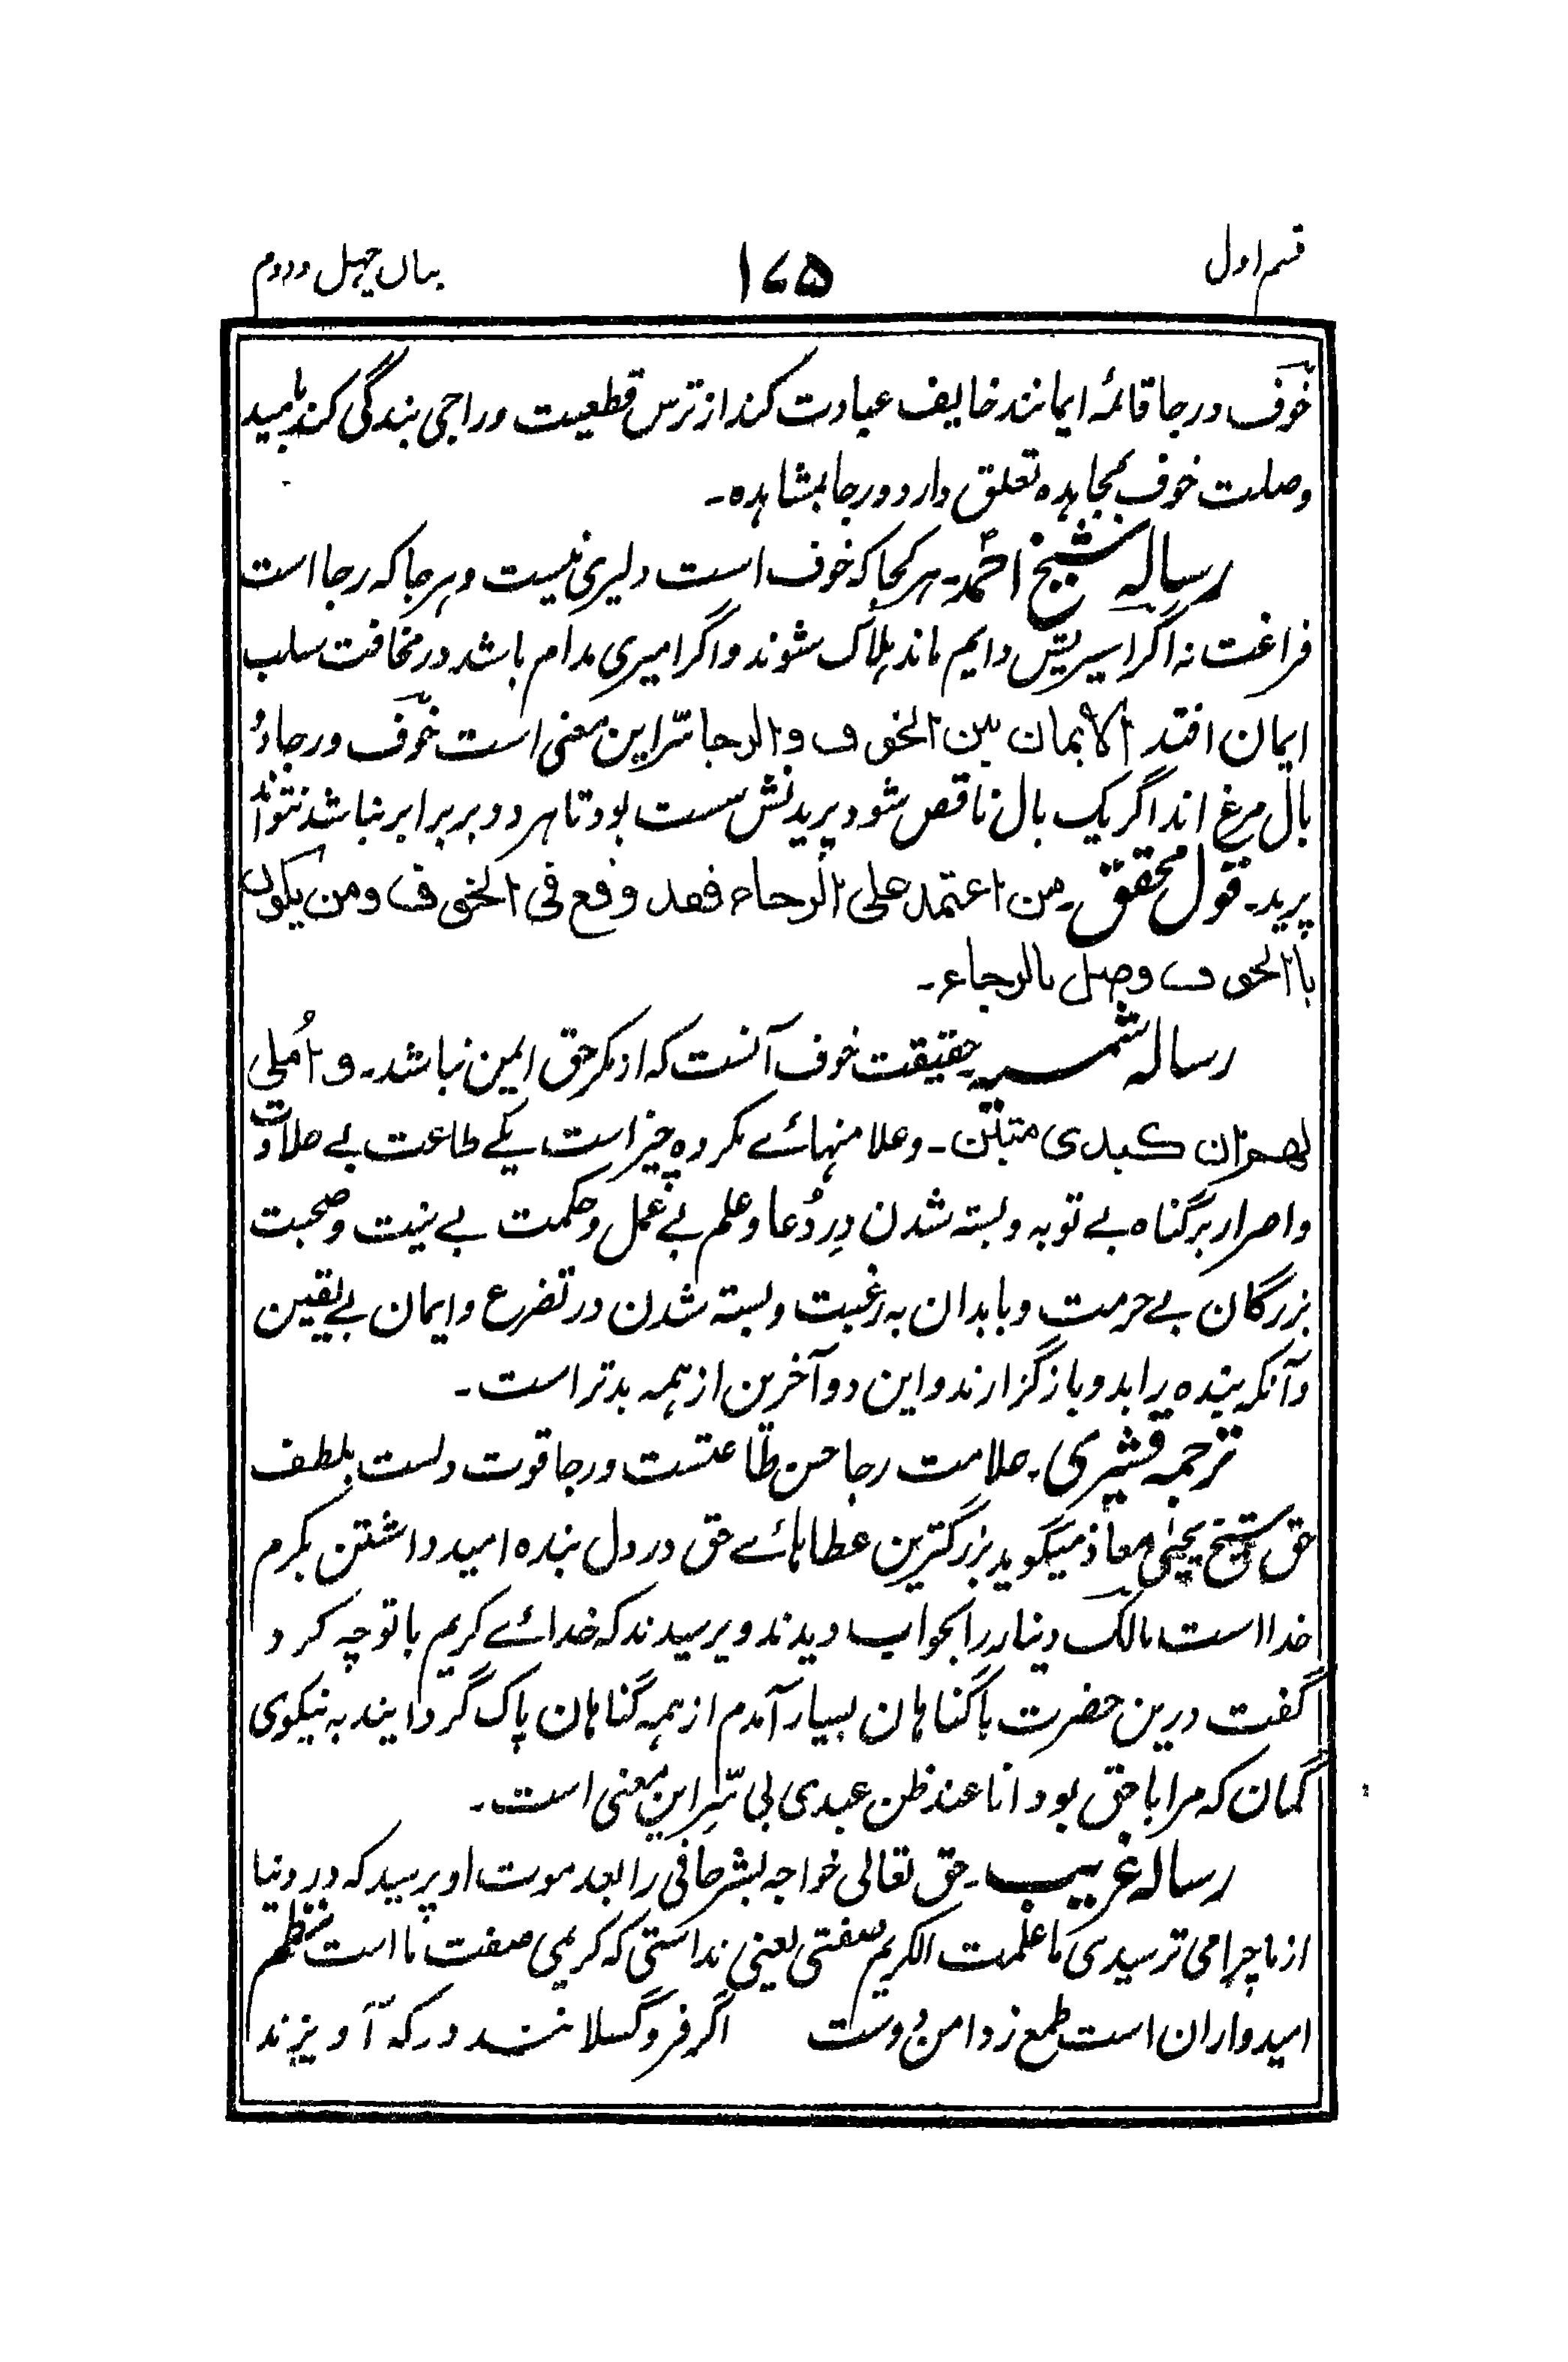 قسم اول
۱۷۵
بیان چہل و دوم
خوف و رجا قائمۂ ایمانند خایف عبادت کند از ترس قطعیت و راجی بندگی کند بامید
وصلت خوف بمجاہدہ تعلق دارد و رجا بمشاہدہ۔
رسالہ شیخ احمد۔ ہر کجا کہ خوف است دلیری نیست و ہر جا کہ رجا است
فراغت نہ اگر اسیریش دایم ماند ہلاک شوند و اگر امیری مدام باشد در مخافت سلب
ایمان افتد الایمان بین الخوف و الرجا سرّ این معنی است خوف و رجا دو
بال مرغ اند اگر یک بال ناقص شود پریدنش سست بود تا ہر دو بر برابر نباشد نتواند
پرید۔ قول محقق۔ من اعتمد علی الرجاء فقد وقع فی الخوف ومن یکون
باالخوف وصل بالرجاء۔
رسالہ شمسیہ۔ حقیقت خوف آنست کہ از مکر حق ایمن نباشد۔ و اُملی
لهم ان كيدى متين۔ وعلامتہائے مکر دہ چیز است یکے طاعت بے حلاوت
و اصرار بر گناہ بے توبہ و بستہ شدن درِ دُعا و علم بے عمل و حکمت بے نیت و صحبت
بزرگان بے حرمت و با بدان بہ رغبت و بستہ شدن در تضرع و ایمان بے یقین
و آنکہ بندہ را بدو باز گزارند و این دو آخرین از ہمہ بدتر است۔
ترجمہ قشیری۔ علامت رجا حسن طاعتست و رجا قوت دلست بلطف
حق شیخ یحییٰ معاذ میگوید بزرگترین عطاہائے حق در دل بندہ امید داشتن بکرم
خدا است مالک دینار را بخواب دیدند و پرسیدند کہ خدائے کریم با تو چہ کرد
گفت درین حضرت با گناہان بسیار آمدم از ہمہ گناہان پاک گردانیند بہ نیکوی
گمان کہ مرا با حق بود انا عند ظن عبدی بی سّرِ این معنی است۔
رسالہ غریب۔ حق تعالی خواجہ بشر حافی را بعد موت او پرسید کہ در دنیا
از ما چرا می ترسیدی ما علمت الکریم صفتی یعنی ندانستی کہ کریمی صفت ما است نظم
امیدواران است طمع ز دامن دوست اگر فرو گسلانند در کہ آویزند